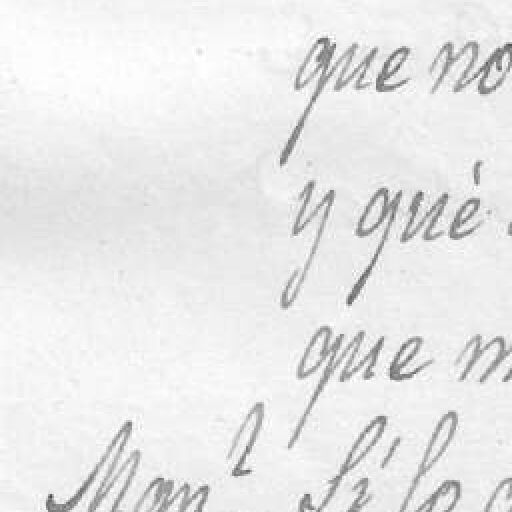 que no
y què
que m
Man.l Si lo